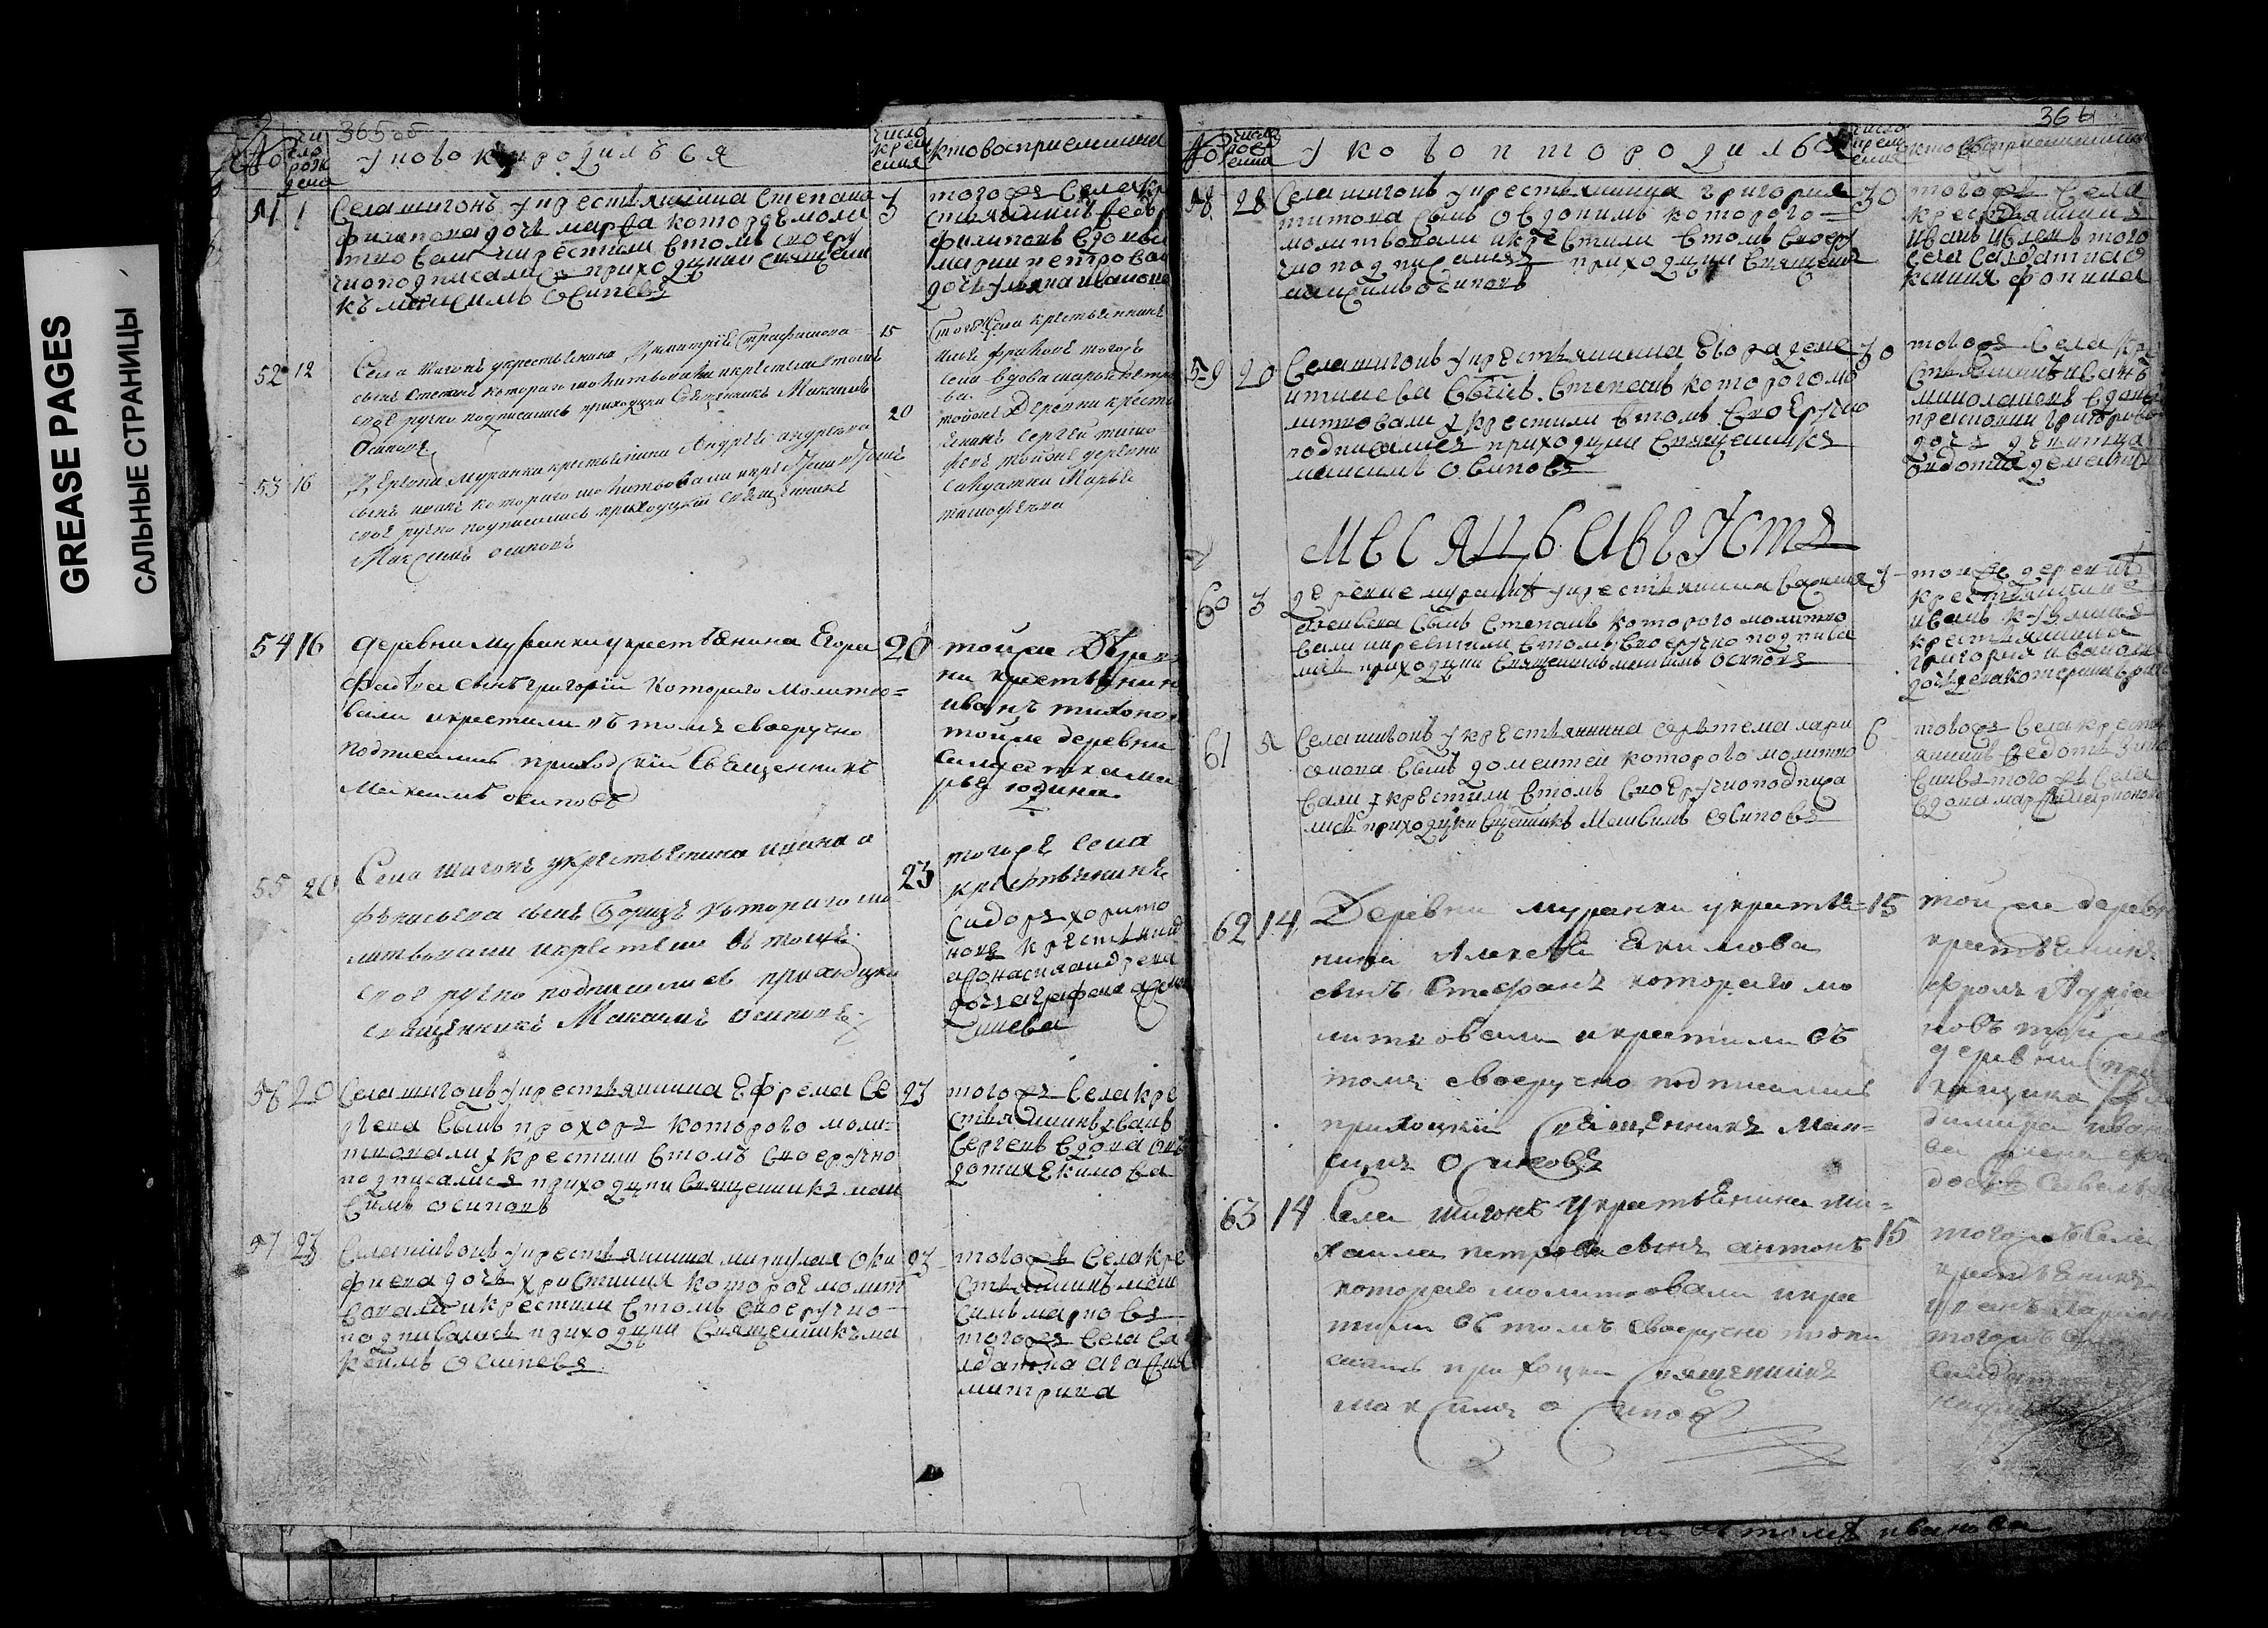 GREASE PAGES
САЛЬНЫЕ СТРАНИЦЫ
365 об
№
число рождения
У ково кто родился
число крещения
кто восприемники
51 1
Села шигонъ у крестьянина Степана
филипова дочь марфа которую моли
твовали и крестили в томъ своеру
чно подписался приходции священи
къ максимъ осиповъ
3
тогожъ села кр
стьянинъ
филиповъ вдовы
марии петрово
дочь ульяна иванова
52 12
Села шигонъ укрестьянина Димитрия Трафимова
сынъ Степанъ котораго молитвовали и крестили втомъ
своеручно подписались приходции Священникъ Максимъ
Осиповъ
15
тогожъ села крестьянинъ
тогожъ
села вдова марья петро
ва
53 16
Деревни Муранки крестьянина Андрея андреева
сынъ иванъ котораго молитвовали и крестили втомъ
своеручно подписались приходский священникъ
Максимъ осиповъ
20
тойже Деревни кресть
янинъ Сергей тимо
феевъ тойже деревни
салдатка Марья
тимофеева
54 16
деревни муранки укрестьянина Егора
сынъ григорий котораго молитво=
вали икрестили въ томъ своеручно
подписались приходский Священникъ
Максимъ осиповъ
20
тойже Дерев
ни крестьянин
иванъ тихоно
тойже деревни
салдатка ма
рья юдина
55 20
Села шигонъ укрестьянина ивана а
фанасьева сынъ Борисъ котораго мо
литвовали икрестили въ томъ
своеручно подписались приходцки
священникъ Максимъ осиповъ
23
тогожъ села
крестьянинъ
сидоръ харито
новъ крестьянин
афонасия андреева
дочь аграфена
56 20
Села шигонъ укрестьянина Ефрема Се
ргеева сынъ прохоръ которого моли=
твовали и крестили втомъ своеручно
подписался приходции священникъ мак
симъ осиповъ
23
тогожъ села кре
стьянинъ иванъ
сергеевъ вдова овъ
дотия екимова
57 23
Села шигонъ укрестьянина
фиева дочь христиния которою молит
вовали икрестили втомъ своеручно
подписались приходции священникъ ма
ксимъ осиповъ
23
тогожъ села кре
стьянинъ мак
симъ марковъ
тогожъ села са
лдатка агафия
митриева
366
№
число рождения
У ково кто родился
число крещения
кто восприемники
58 28
Села шигонъ укрестьянина григория
титова сынъ овдокимъ которого=
молитвовали икрестили втомъ своеру
чно подписался приходции священик
максимъ осиповъ
30
тогожъ села
крестьянинъ
иванъ ивлевъ того
села салдатка
ксиния фомина
59 29
Села шигонъ укрестьянина Егора деме
нтиева сынъ Степанъ которого мо
литвовали и крестили втомъ своеручно
подписался приходции священикъ
максимъ осиповъ
30
тогожъ села кр
стьянинъ иванъ
миколаевъ вдовы
прасковии григорово
дочь девитца
овдотиа
МЕСЯЦЪ АВГУСТЪ
60 3
деревне муранке укрестьянина василия
сынъ Степанъ которого молитво
вали икрестили втомъ своеручно подписа
лсь приходции священникъ максимъ осиповъ
3
тойже деревни
крестьянинъ
иванъ кузминъ
крестьянина
григория иванова
дочь екатерина
61 5
Села шигонъ у крестьянина артема лари
онова сынъ доментей которого молитво
вали и крестили втомъ своеручно подписа
лись приходцки священикъ Максимъ осиповъ
6
тогожъ села крест
янинъ федотъ
тогожъ села
вдова марфа ларионова
62 14
Деревни муранки укрестья=
нина Алексея Екимова
сынъ Стефанъ котораго мо
литвовали икрестили въ
томъ своеручно подписались
приходцкий священникъ Мак=
симъ Осиповъ
15
той же деревн
крестьянинъ
фролъ Адриа
новъ той же
деревни
63 14
Села шигонъ укрестьянина ми=
хаила петрова сынъ антонъ
котораго молитвовали икре
стили въ томъ своеручно подпи
сались приходцки священникъ
максимъ осиповъ
15
тогожъ села
крестьянинъ
тогожъ села
салдат
иванова